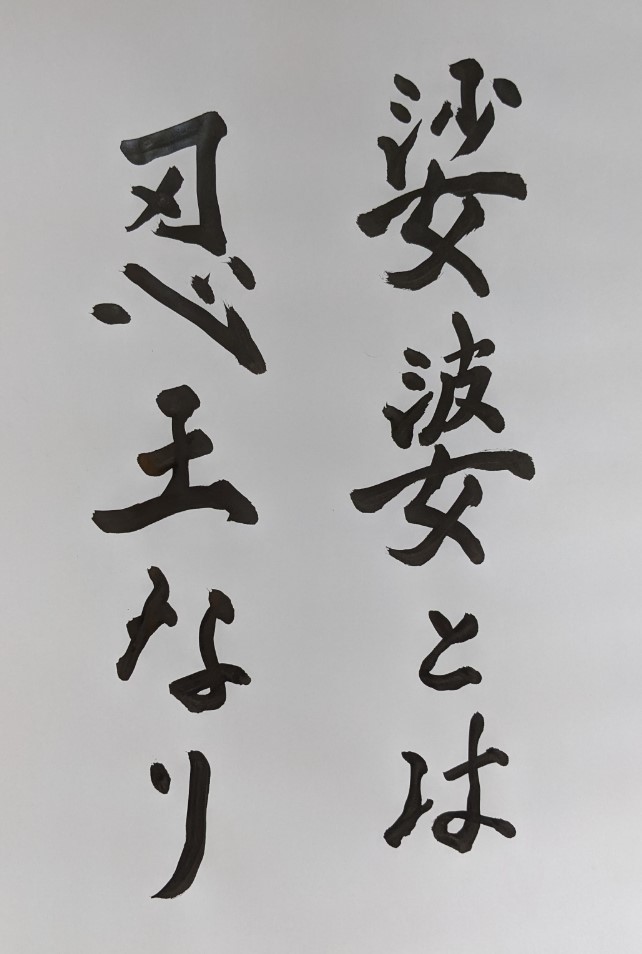 娑婆とは
忍王なり